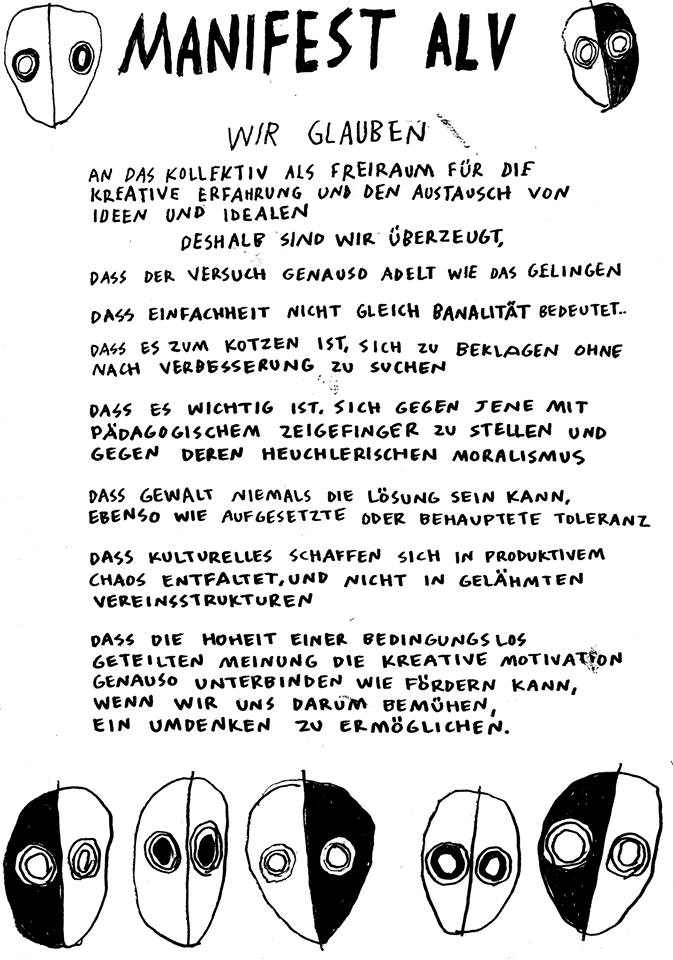 MANIFEST ALV
WIR GLAUBEN
AN DAS KOLLEKTIV ALS FREIRAUM FÜR DIE
KREATIVE ERFAHRUNG UND DEN AUSTAUSCH VON
IDEEN UND IDEALEN
DESHALB SIND WIR ÜBERZEUGT,
DASS DER VERSUCH GENAUSO ADELT WIE DAS GELINGEN
DASS EINFACHHEIT NICHT GLEICH BANALITÄT BEDEUTET..
DASS ES ZUM KOTZEN IST, SICH ZU BEKLAGEN OHNE
NACH VERBESSERUNG ZU SUCHEN
DASS ES WICHTIG IST, SICH GEGEN JENE MIT
PÄDAGOGISCHEM ZEIGEFINGER ZU STELLEN UND
GEGEN DEREN HEUCHLERISCHEN MORALISMUS
DASS GEWALT NIEMALS DIE LÖSUNG SEIN KANN,
EBENSO WIE AUFGESETZTE ODER BEHAUPTETE TOLERANZ
DASS KULTURELLES SCHAFFEN SICH IN PRODUKTIVEM
CHAOS ENTFALTET, UND NICHT IN GELÄHMTEN
VEREINSSTRUKTUREN
DASS DIE HOHEIT EINER BEDINGUNGSLOS
GETEILTEN MEINUNG DIE KREATIVE MOTIVATION
GENAUSO UNTERBINDEN WIE FÖRDERN KANN,
WENN WIR UNS DARUM BEMÜHEN,
EIN UMDENKEN ZU ERMÖGLICHEN.